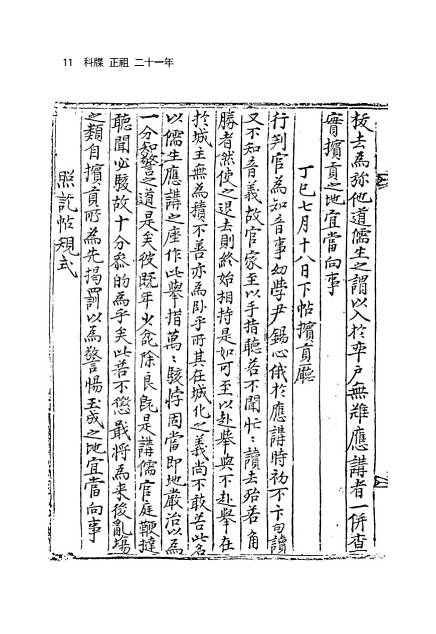 11 科牒 正祖 二十一年
拔去為旀他道儒生之謂以入於率户無難應講者一併查
實擯貢之地宜當向事
丁巳七月十八日下帖擯貢廳
行判官為知音事幼學尹錫心俄於應講時初不下句讀
又不知音義故官家至以手指聽若不聞忙〻讀去殆若角
勝者然使之退去則終始相持是如可至以赴擧與不赴擧在
於城主無為積不善亦為卧乎所其在城化之義尚不敢若此名
以儒生應講之座作此擧措萬〻駭悖固當即地嚴治以為
一分知警之道是矣彼既年少除良既是講儒官庭鞭撻
聽聞必駭故十分參的為乎矣此若不懲最將為来後亂場
之類自擯貢所為先揭罰以為警惕玉成之地宜當向事
照訖帖規式